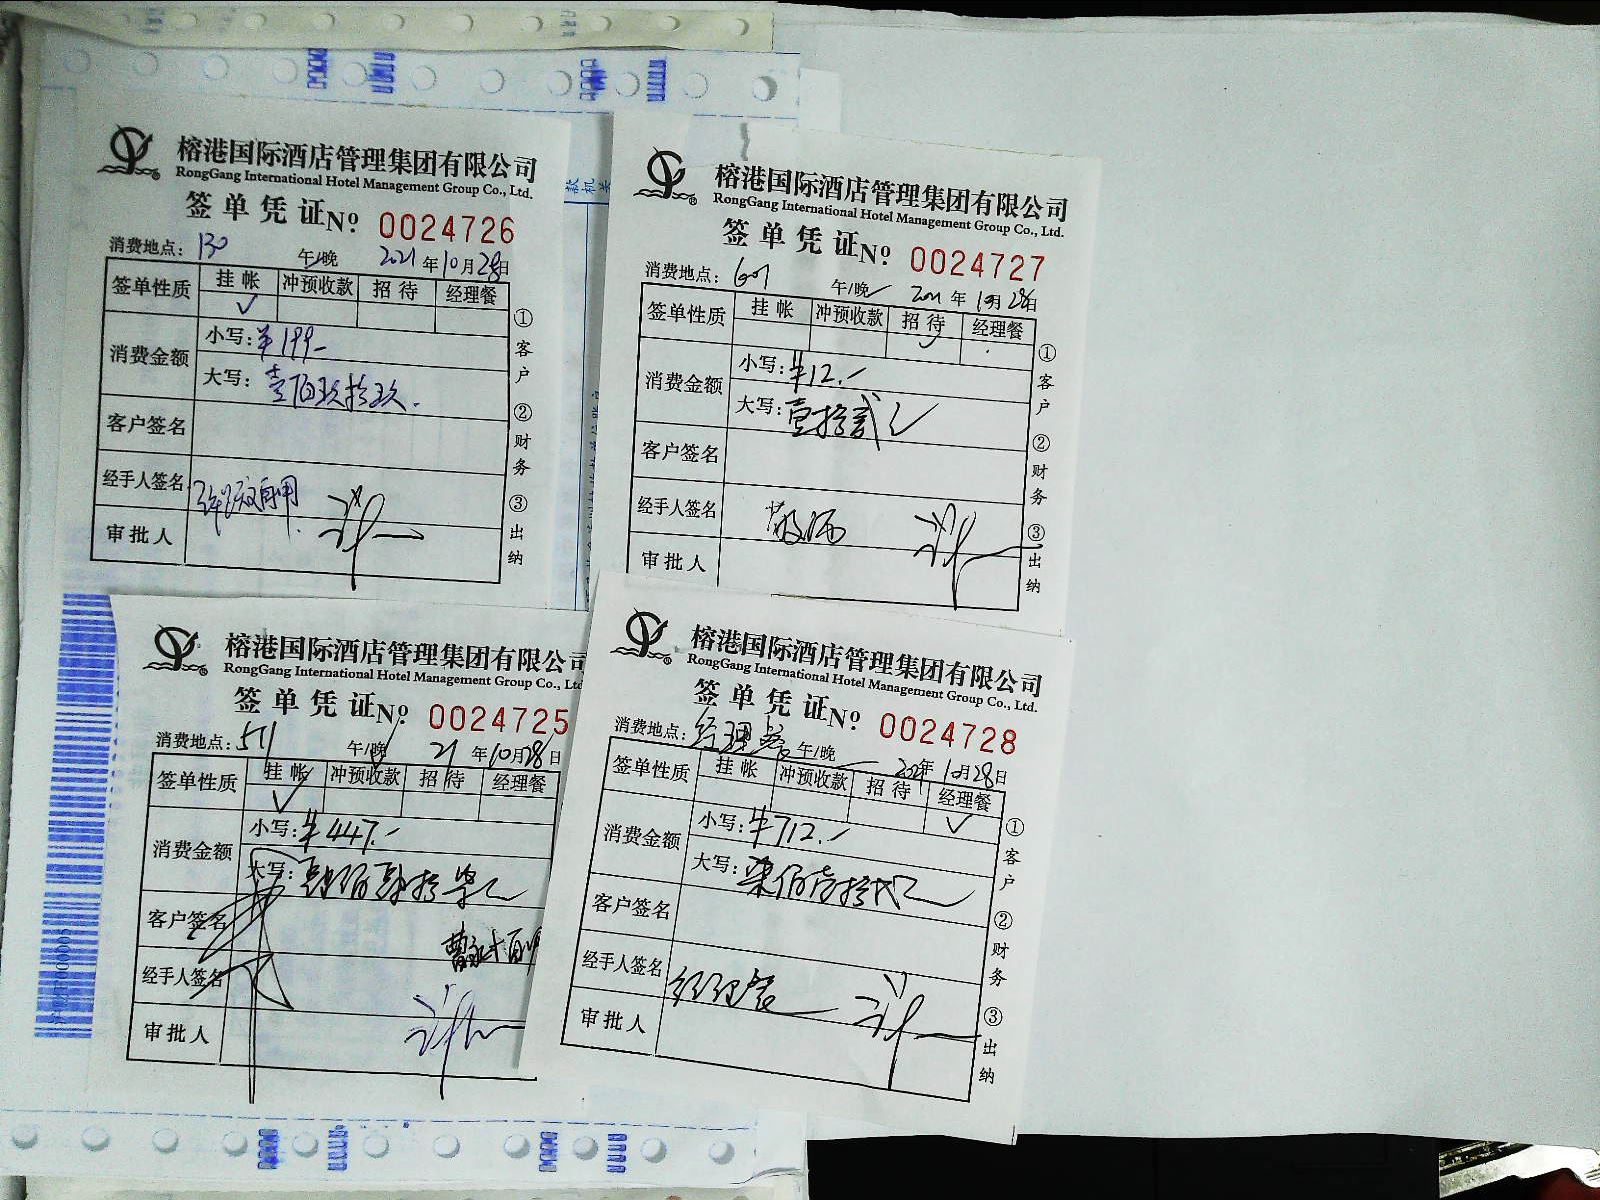 榕港国际酒店管理集团有限公司
RongGang International Hotel Management Group Co., Ltd.
签单凭证 № 0024726
消费地点：130 午/晚 2021年10月28日
签单性质 挂帐 冲预收款 招待 经理餐
✓
消费金额 小写：¥199-
大写：壹佰玖拾玖.
客户签名
经手人签名
审批人
①客户 ②财务 ③出纳
榕港国际酒店管理集团有限公司
RongGang International Hotel Management Group Co., Ltd.
签单凭证 № 0024727
消费地点： 午/晚 2021年10月28日
签单性质 挂帐 冲预收款 招待 经理餐
✓
消费金额 小写：¥12.-
大写：壹拾贰元
客户签名
经手人签名
审批人
①客户 ②财务 ③出纳
榕港国际酒店管理集团有限公司
RongGang International Hotel Management Group Co., Ltd
签单凭证 № 0024725
消费地点：511 午/晚 21年10月28日
签单性质 挂帐 冲预收款 招待 经理餐
✓
消费金额 小写：¥447.-
大写：肆佰肆拾柒元
客户签名
经手人签名
审批人
榕港国际酒店管理集团有限公司
RongGang International Hotel Management Group Co., Ltd.
签单凭证 № 0024728
消费地点：经理餐 午/晚 2021年10月28日
签单性质 挂帐 冲预收款 招待 经理餐
✓
消费金额 小写：¥712.-
大写：柒佰壹拾贰元
客户签名
经手人签名 经理餐
审批人
①客户 ②财务 ③出纳